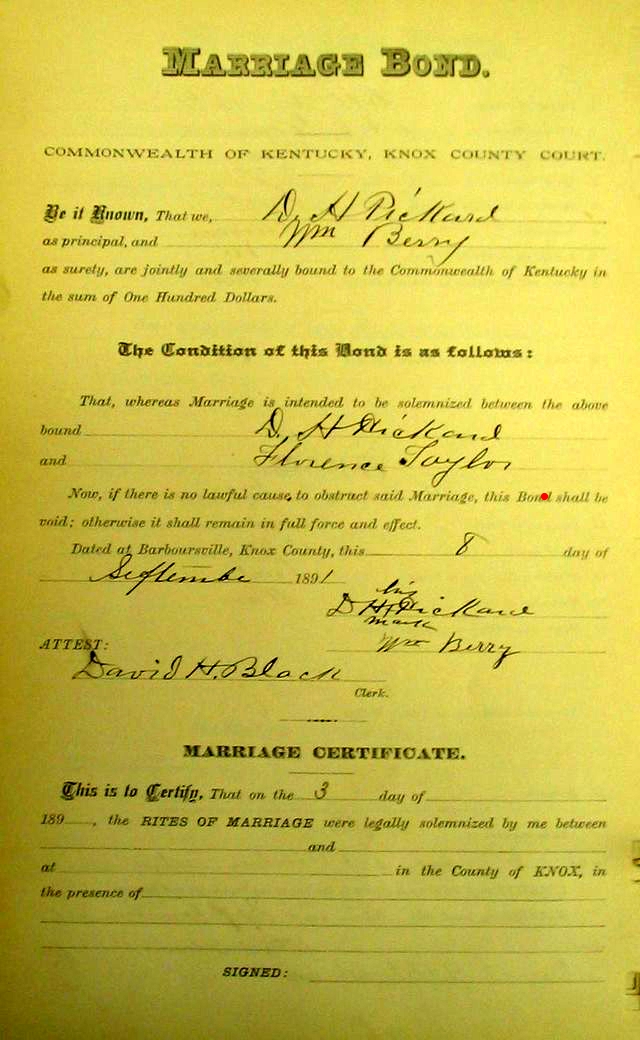 MARRIAGE BOND.
COMMONWEALTH OF KENTUCKY, KNOX COUNTY COURT.
Be it Known, That we, D. H Pickard
as principal, and Wm Berry
as surety, are jointly and severally bound to the Commonwealth of Kentucky in
the sum of One Hundred Dollars.
The Condition of this Bond is as follows:
That, whereas Marriage is intended to be solemnized between the above
bound D. H Pickard
and Florence Taylor
Now, if there is no lawful cause, to obstruct said Marriage, this Bond shall be
void; otherwise it shall remain in full force and effect.
Dated at Barboursville, Knox County, this 8 day of
Septembe 1891
his
D H Pickard
mark
ATTEST: Wm Berry
David H. Black
Clerk.
MARRIAGE CERTIFICATE.
This is to Certify, That on the 3 day of
189 , the RITES OF MARRIAGE were legally solemnized by me between
and
at in the County of KNOX, in
the presence of
SIGNED: